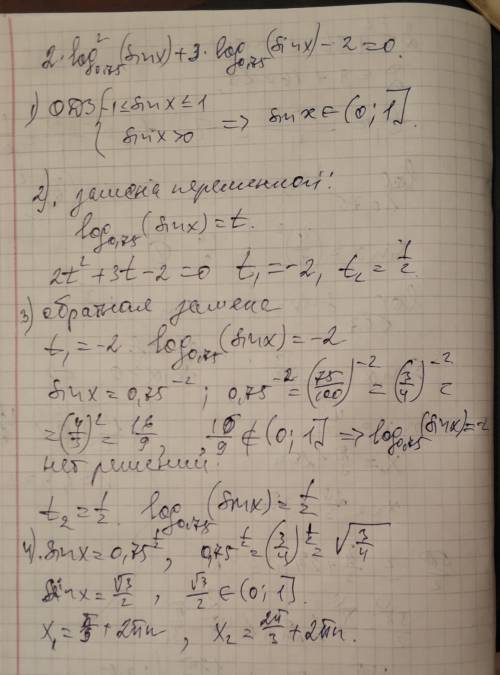 2·log²₀,₇₅(sinx)+3·log₀,₇₅(sinx)-2=0.
1) ОДЗ { -1≤sinx≤1
sinx>0 => sinx∈(0;1]
2). замена переменной:
log₀,₇₅(sinx)=t.
2t²+3t-2=0 t₁=-2, t₂=1/2
3) обратная замена
t₁=-2 log₀,₇₅(sinx)=-2
sinx=0,75⁻²; 0,75⁻²=(75/100)⁻²=(3/4)⁻²=
=(4/3)²=16/9, 16/9∉(0;1] => log₀,₇₅(sinx)=-2
нет решений
t₂=1/2. log₀,₇₅(sinx)=1/2
4). sinx=0,75^(1/2), 0,75^(1/2)=(3/4)^(1/2)=√(3/4)
sinx=√3/2, √3/2∈(0;1]
x₁=π/3+2πn, x₂=2π/3+2πn.